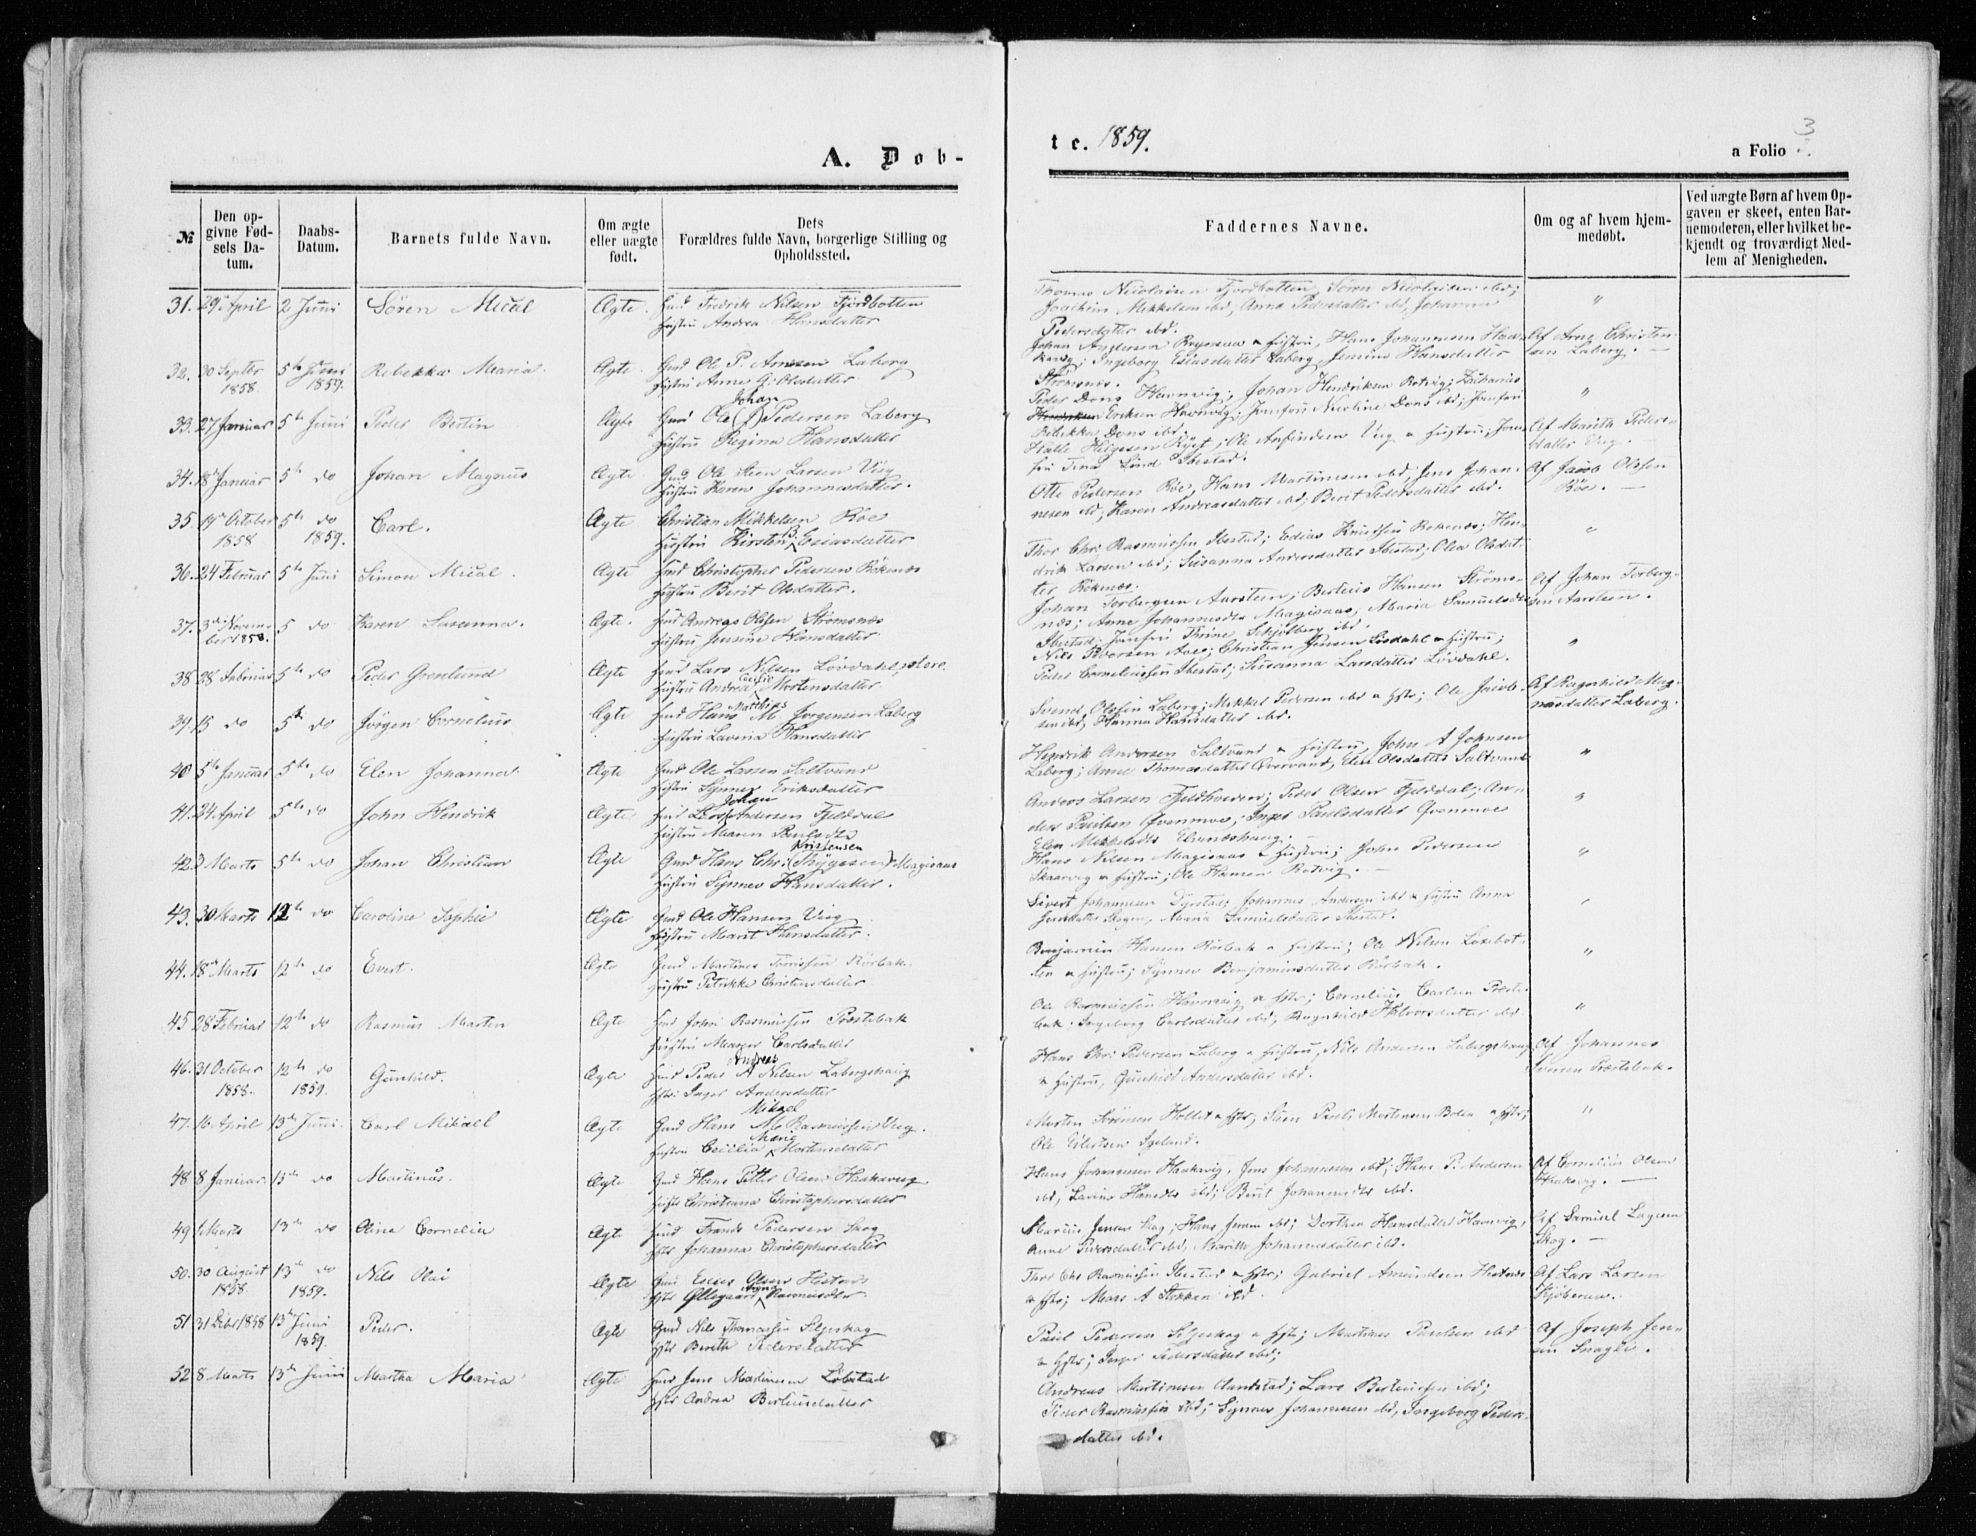 A. Døb-
te. 1859.
a Folio 3.
№
Den op-
givne Fød-
sels Da-
tum.
Daabs-
Datum.
Barnets fulde Navn.
Om ægte
eller uægte
født.
Dets
Forældres fulde Navn, borgerlige Stilling og
Opholdssted.
Faddernes Navne.
Om og af hvem hjem-
medøbt.
Ved uægte Børn af hvem Op-
gaven er skeet, enten Bar-
nemoderen, eller hvilket be-
kjendt og troværdigt Med-
lem af Menigheden.
31. 29 April 2 Juni Sören Mical Ægte. Gmd Fredrik Nilsen Fjordbotten
Hustru Andrea Hansdatter
Thomas Nicolaisen Fjordbotten, Sören Nicolaisen ibd;
Joachim Mikkelsen ibd, Anna Pedersdatter ibd, Johanna
Pedersdatter ibd.
32. 30 Septbr 1858. 5te Juni 1859. Rebekka Maria. Ægte. Gmd Ole P. Arnesen Laberg
Hustru Anne G. Olsdatter.
Johan Andersen & Hustru, Hans Johannesen
Ingeborg Esiasdatter Laberg, Hansdatter
Strömsnæs.
Af Arne Christen-
sen Laberg.
33. 27 Januar 5te Juni Peder Bertin Ægte Gmd Ole (J) Johan Pedersen Laberg
Hustru Regina Hansdatter
Peder Dons Havnvig; Johan Hendriksen Rotvig; Zacharias
Eriksen Havnvig; Jomfru Nicoline Dons ibd; Jomfru
Rebekka Dons ibd.
34. 18 Januar 5te do Johan Magnus Ægte Gmd Ole Larsen Vig
Hustru Karen Johannesdatter.
Helgesen; Ole Vig & Hustru; Jom-
fru Tina Lind Ibestad.
Af Marith Peders-
datter Vig.
35. 19 October 1858 5te do 1859. Carl. Ægte Christian Mikkelsen Röe
Hustru Kirsten B. Esiasdatter
Otte Pedersen Röe, Hans Martinesen ibd, Jens Johan-
nesen ibd, Karen Andreasdatter ibd, Berit Pedersdatter ibd.
Af Jacob Olsen
Röe.
36. 24 Februar 5te Juni Simon Mical. Ægte Gmd Christopher Pedersen Rökenæs
Hustru Berit Olsdatter.
Thor Chr. Rasmussen Ibestad; Edias Knudsen Rokenæs; Hen-
drik Larsen ibd; Susanna Andersdatter Ibestad; Olea Olsdat-
ter Rökenæs.
37. 3die Novem-
ber 1858. 5 do Karen Susanna. Ægte. Gmd Andreas Olsen Strömsnæs
Hustru Jensine Hansdatter
Johan Torbergsen Aarsteen; Berteus Hansen Ströms-
næs; Anne Johannesdtr Magisnæs; Maria Samuelsdtr
Ibestad; Jomfru Thrine Schjelberg ibd.
Af Johan Torberg-
sen Aarsteen.
38 28 Februar 5te do Peder Grønlund Ægte Gmd Lars Nilsen Løvdahl, store
Hustru Andrea Cecilie Mortensdatter
Nils Iversen; Christian Jensen Løvdahl & Hustru;
Peder Corneliussen Ibestad; Susanna Larsdatter Løvdahl.
39. 15 do 5te do Jörgen Cornelius Ægte Gmd Hans M. Matthias Jorgensen Laberg
Hustru Lavina Hansdatter
Svend Olsen Laberg; Mikkel Pedersen ibd & Hstr; Ole Jacob-
sen ibd; Hanna Hansdatter ibd.
Af Ragnhild Mag-
nusdatter Laberg.
40 5te Januar 5te do Elen Johanna Ægte Gmd Ole Larsen Saltvand
Hustru Synnev Eriksdatter
Hendrik Andersen Saltvand & Hustru, John A Johnsen
Laberg; Anne Thomasdatter Overvand, Elen Olsdatter Saltvand
41. 24 April 5te do John Hendrik Ægte Gmd Lars Johan Andersen Fjeldal
Hustru Maren Paulsdtr
Anders Larsen; Peder Olsen Fjeldal; An-
ders Paulsen Qvenmoe; Inger Paulsdatter Qvenmoe
Elen Mikkelsdtr
42. 3 Marts 5te do Johan Christian Ægte Gmd Hans Chri Kristensen Magisnæs
Hustru Synnev Hansdatter.
Hans Nilsen Magisnæs & Hustru; John Pedersen
Skaarvig & Hustru; Ole Hansen Rotvig.
43. 30 Marts 12te do Caroline Sophie Ægte Gmd Ole Hansen Vig
Hustru Marit Hansdatter.
Sivert Johannesen Dyrstad; Johannes Andersen ibd & Hustru Anna
Skogen, Maria Samuelsdatter Ibestad.
44. 18 Marts 12te do Evert. Ægte Gmd Martines Tönnesen Rörbak
Hustru Petrikke Christensdatter
Benjamin Hansen Rörbak & Hustru; Ole Nilsen
& Hustru; Synnev Benjaminsdatter Rörbak.
45 28 Februar 12te do Rasmus Marten Ægte Gmd John Rasmussen Præstebak
Hustru Maren Carlsdatter
Ole Rasmussen Havnvig & Hstr; Cornelius Carlsen Præste-
bak; Ingeborg Carlsdatter ibd; Ragnhild Halvorsdatter ibd
46. 31 October 1858. 12te do 1859. Gunhild. Ægte Gmd Peder A Andreas Nilsen Labergshaug
Hstr: Inger Andersdatter
Hans Chr: Pedersen Laberg & Hustru, Nils Andersen Labergshaug
& Hustru, Gunhild Andersdatter ibd.
Af Johannes
Iversen Præstebak.
47. 16 April 13de Juni. Carl Mikael Ægte Gmd Hans M Mikael Rasmussen Vig.
Hustru Cecilia Maria Mortensdatter
Morten Sörensen & Hstr; Sten Povls Mortensen Bolla & Hstr;
Ole Eilertsen
48 8 Januar. 13de do Martinus. Ægte Gmd Hans Petter Olsen Haakavig
Hustr Christiana Christophersdatter
Hans Johannesen Haakavig, Jens Johannesen ibd, Hans P. Andersen
ibd, Lavina Hansdtr ibd; Berit Johannesdtr ibd.
Af Cornelius Olsen
Haakavig.
49 1 Marts 13de do Oline Cornelia Ægte Gmd Frants Pedersen Skog
Hstr Johanna Christophersdatter
Marius Jensen Skog; Hans Jensen ibd; Dorthea Hansdatter Havnvig,
Anne Pedersdatter ibd, Marith Johannesdatter ibd.
Af Samuel
Skog.
50. 30 August 1858. 13de do 1859. Nils Olai Ægte Gmd Esias Olsen Hestnæs
Hstr Ollegaard Anna Rasmusdtr
Thor Chr Rasmussen Ibestad & Hstr; Gabriel Amundsen Hestnæs
& Hstr; Mons A Stokken ibd.
Af Lars Larsen
51 31 Debr 1858 13de Juni 1859. Peder. Ægte Gmd Nils Thomassen Seljeskog
Hstr Berith Pedersdatter
Paul Pedersen Seljeskog & Hstr; Martines Paulsen ibd
& Hstr; Inger Pedersdatter ibd;
Af Joseph Jen-
sen
52 8 Marts 13de Juni Martha Maria Ægte Gmd Jens Martinesen Löbstad
Hstr Andrea Berteusdatter
Andreas Martinesen; Lars Berteussen ibd;
Peder Rasmussen ibd; Synnev Johannesen ibd, Ingeborg Peders-
datter ibd.